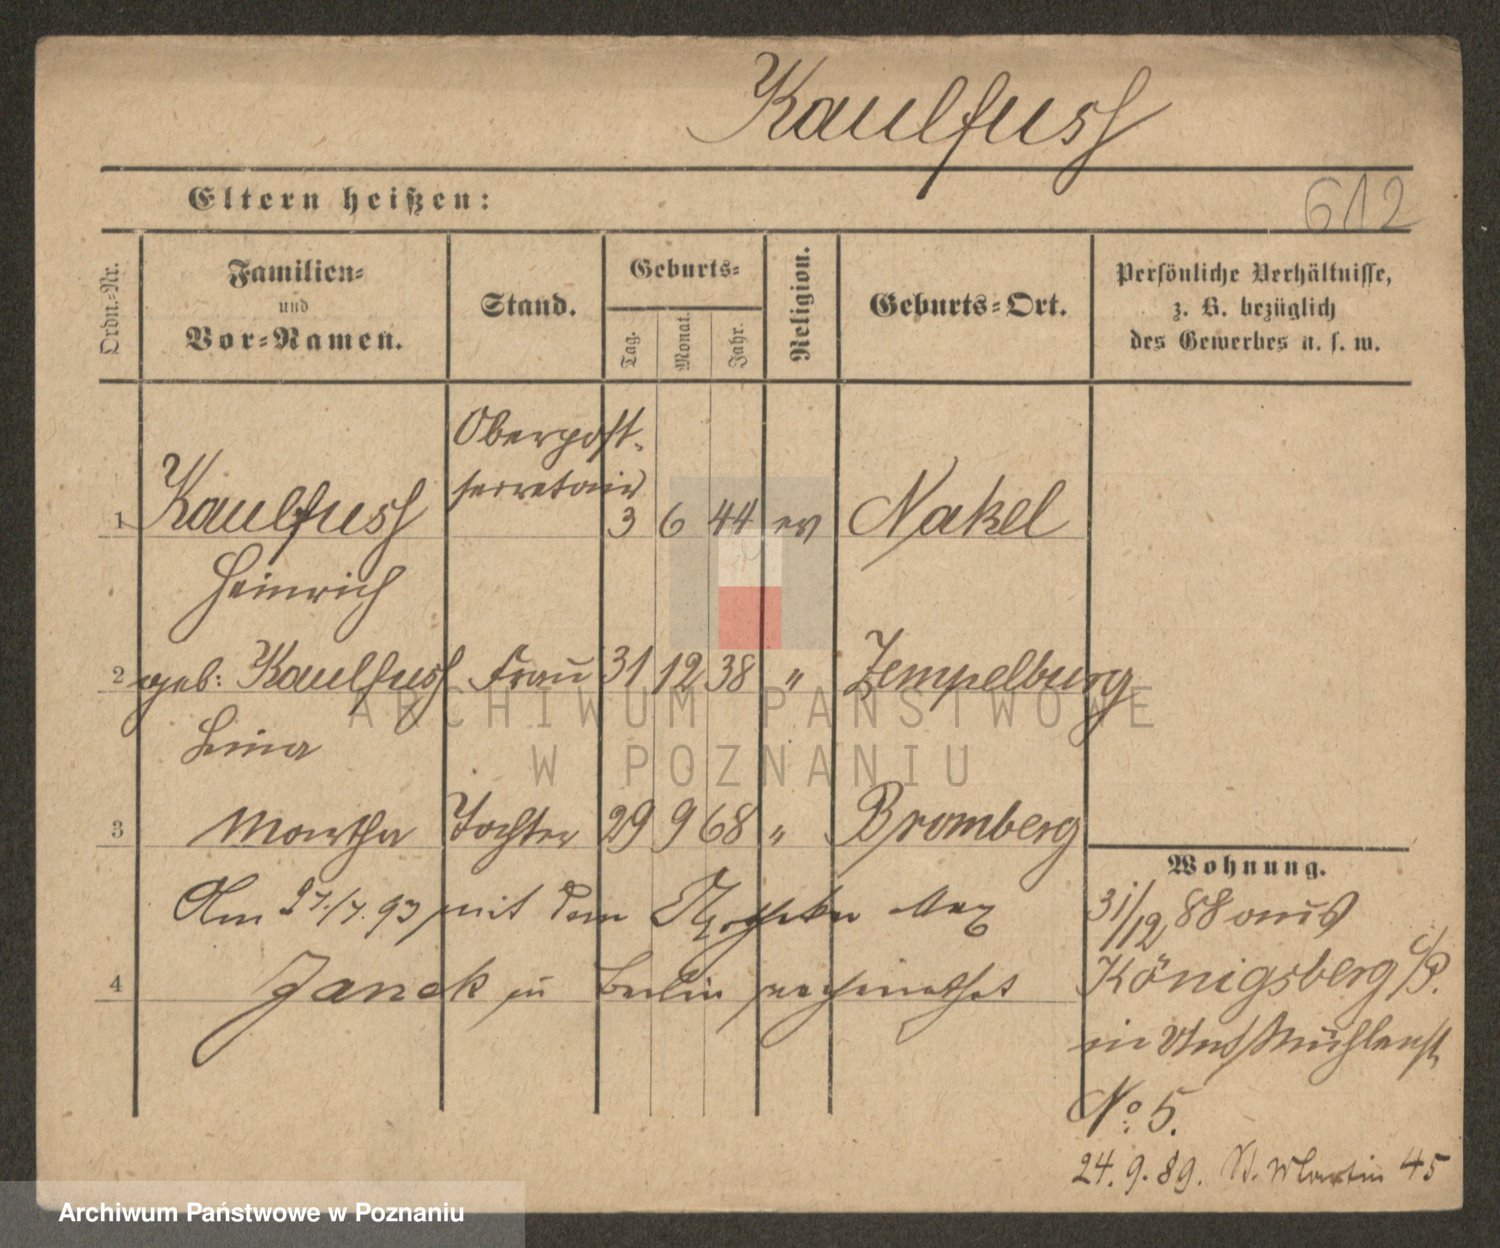 Kaulfuss
Eltern heißen:
612
Ordn.-Nr.
Familien-
und
Vor-Namen.
Stand.
Geburts-
Tag.
Monat.
Jahr.
Religion.
Geburts-Ort.
Persönliche Verhältnisse,
z. B. bezüglich
des Gewerbes u. s. w.
Oberpost-
secretair
1 Kaulfuss 3 6 44 ev Nakel
Heinrich
2 geb: Kaulfuss Frau 31 12 38 " Zempelburg
Lina
3 Martha Tochter 29 9 68 " Bromberg
Am 27./7. 93 mit dem Apotheker Max
4 Janek in Berlin verheirathet
Wohnung.
31/12 88 aus
Königsberg i/P.
in Mühlenst.
No. 5.
24. 9. 89. St. Martin 45
ARCHIWUM PAŃSTWOWE
W POZNANIU
Archiwum Państwowe w Poznaniu